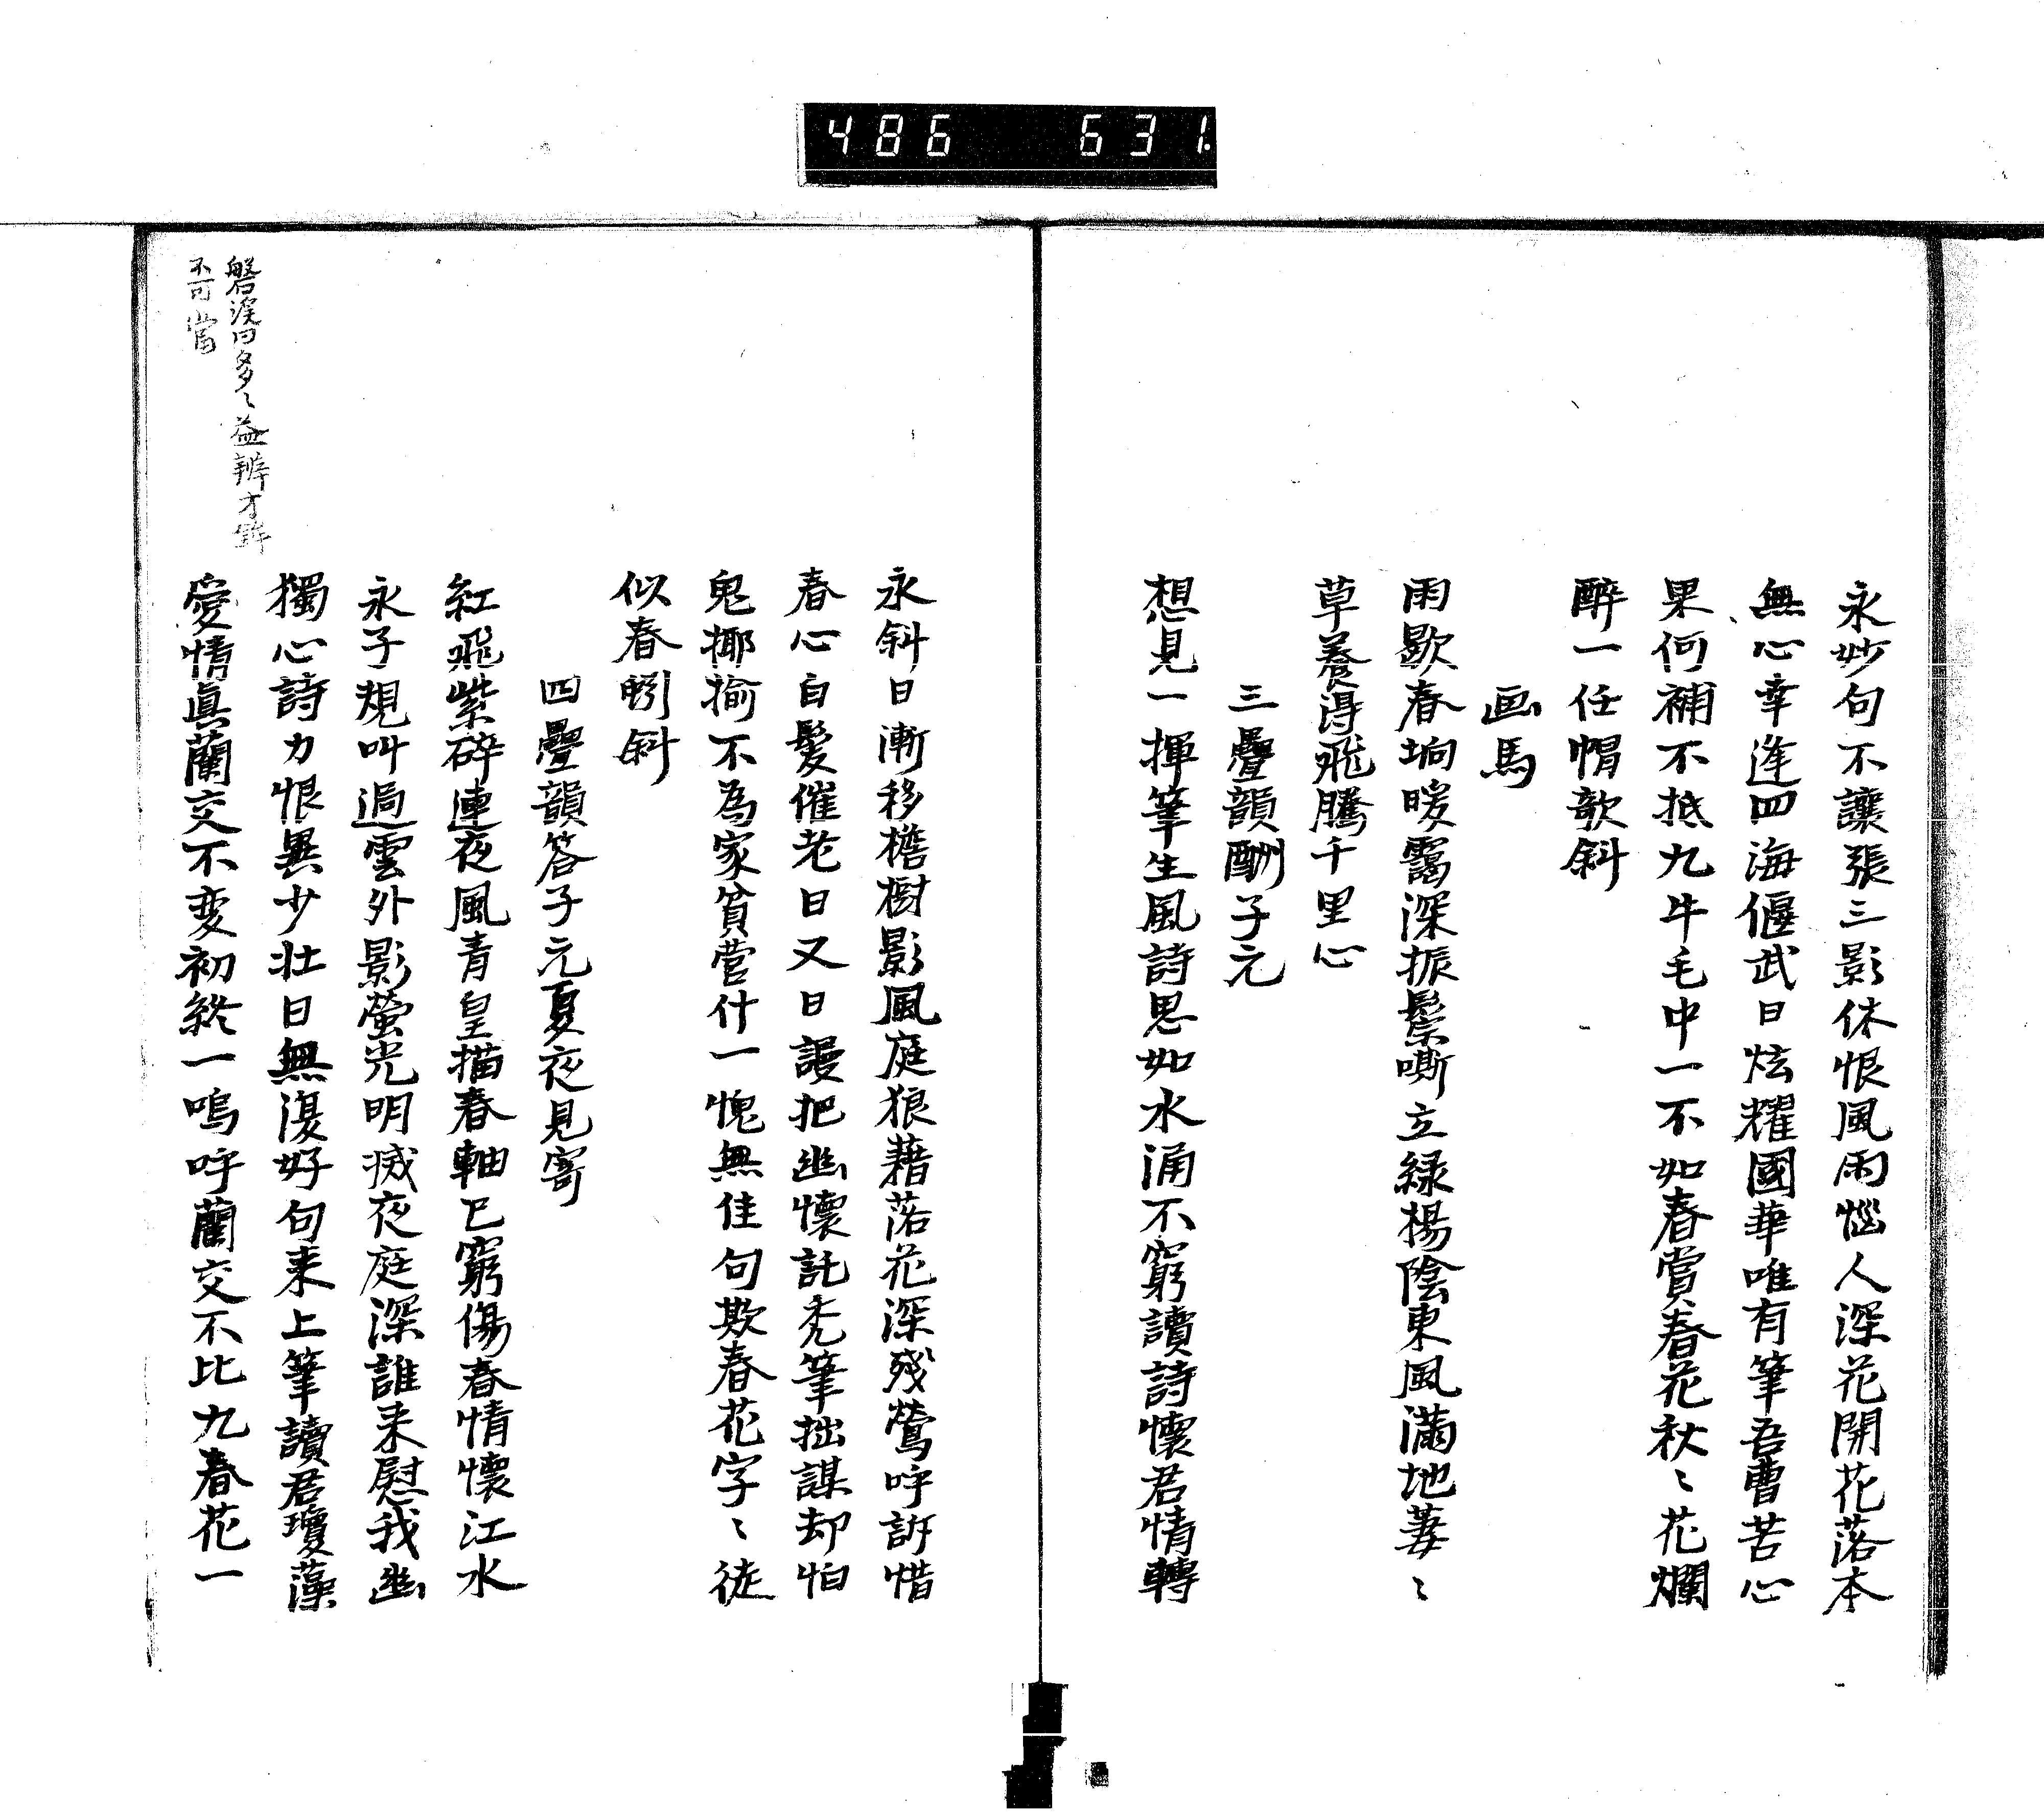 486 631
永妙句不讓張三影休恨風雨惱人深花開花落本
無心幸逢四海偃武日炫耀國華唯有筆吾曹苦心
果何補不抵九牛毛中一不如春賞春花秋〻花爛
醉一任帽欹斜
画馬
雨歇春坰暖靄深振鬃嘶立緑楊陰東風滿地萋〻
草養得飛騰千里心
三疊韻酬子元
想見一揮筆生風詩思如水涌不窮讀詩懷君情轉
永斜日漸移檐樹影風庭狼藉落花深殘鶯呼訴惜
春心自髮催老日又日謾把幽懷託禿筆拙謀却怕
鬼揶揄不為家貧營什一愧無佳句欺春花字〻徒
似春蚓斜
四疊韻答子元夏夜見寄
紅飛紫碎連夜風青皇描春軸已窮傷春情懷江水
永子規叫過雲外影螢光明滅夜庭深誰来慰我幽
獨心詩力恨異少壮日無復好句来上筆讀君瓊藻
愛情眞蘭交不変初終一嗚呼蘭交不比九春花一
磐渓曰多〻益辨才鋒
不可當